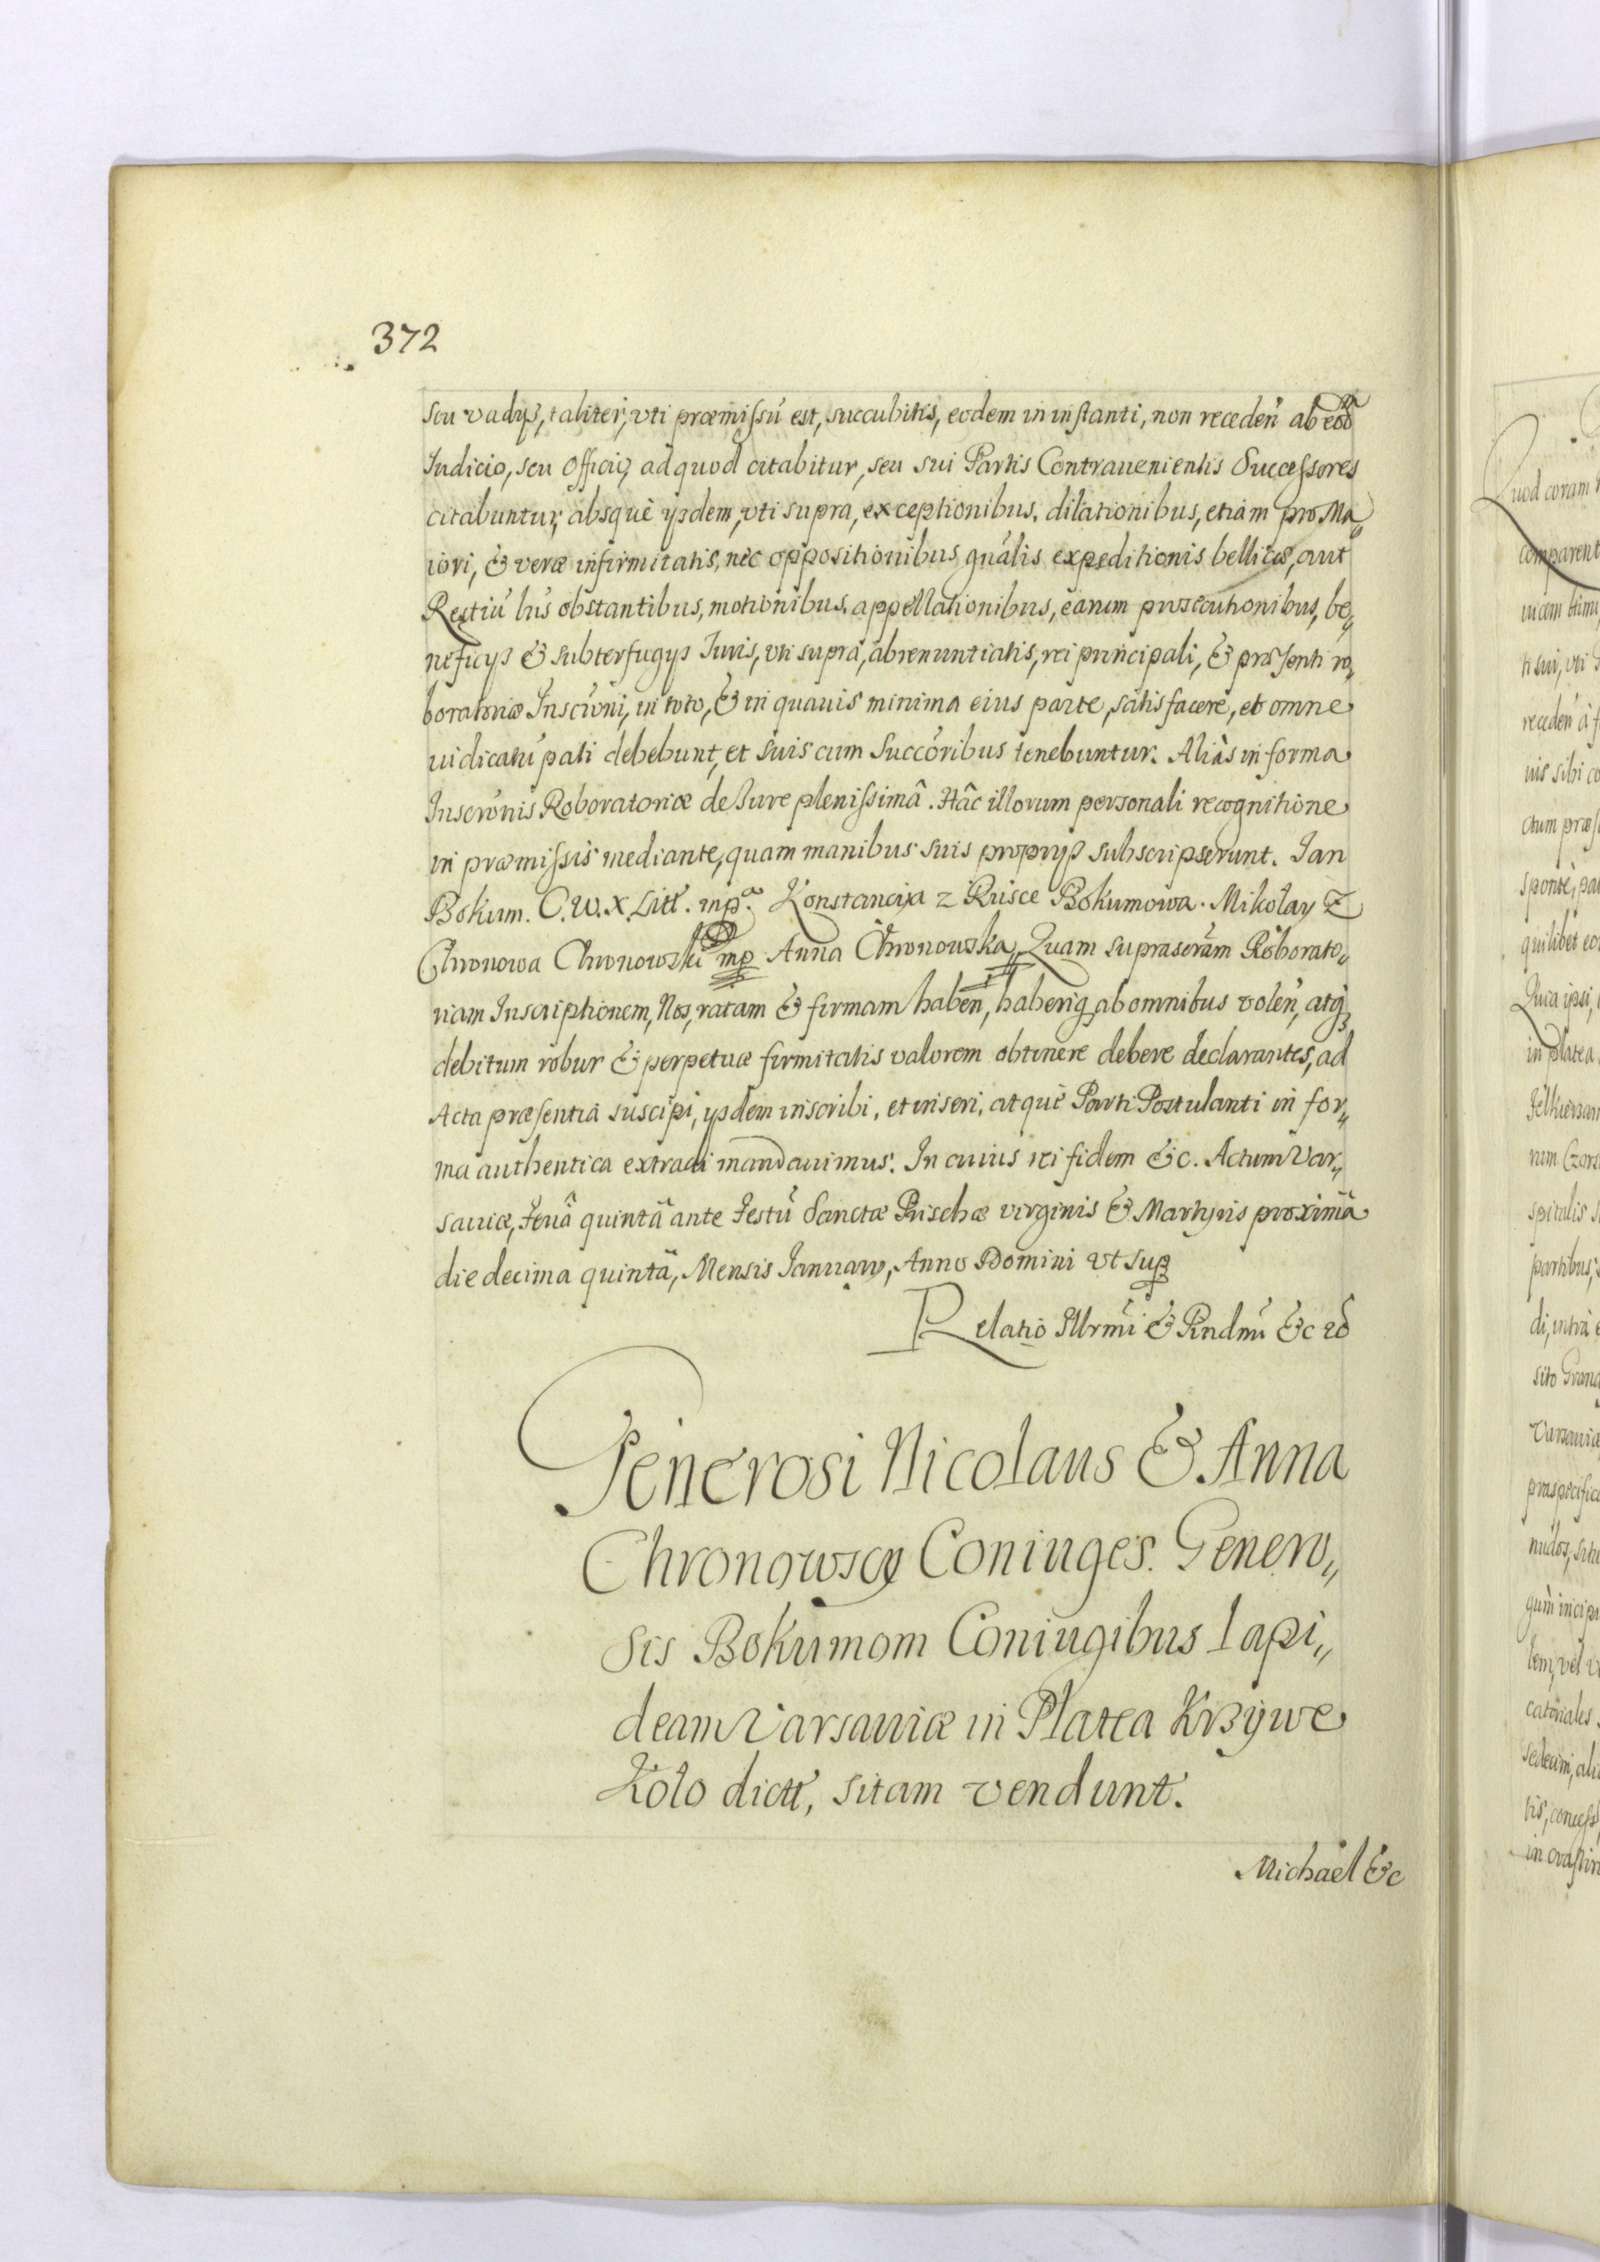 372
seu vadijs, taliter, vti præmissū est, succubitis, eodem in instanti, non receden̄ ab eod
Iudicio, seu Officio, ad quod citabitur, seu sui Partis Contrauenientis Successores
citabuntur, absquè ijsdem, vti supra, exceptionibus, dilationibus, etiam pro Ma„
iori, & veræ infirmitatis, nec oppositionibus gnālis expeditionis bellicæ, aut
Restiū lus obstantibus, motionibus, appellationibus, earum prosecutionibus, be„
neficijs & subterfugijs Iuris, vti supra, abrenuntiatis, rei principali, & præsenti ro„
boratoriæ Inscrōni, in toto, & in quauis minima eius parte, satisfacere, et omne
iudicatū pati debebunt, et suis cum Succōribus tenebuntur. Aliàs in forma
Inscrōnis Roboratoriæ de Iure plenissimâ. Hâc illorum personali recognitione
in præmissis mediante, quam manibus suis proprijs subscripserunt. Ian
Bokum. C.W.X. Litt. mp. Konstancija z Prisce Bokumowa. Mikolay Z
Chronowa Chronowski mp Anna Chronowska, Quam suprascrām Roborato„
riam Inscriptionem, Nos, ratam & firmam haben, haberiq, ab omnibus volen̄, atq
debitum robur & perpetuæ firmitatis valorem obtinere debere declarantes, ad
Acta præsentia suscipi, ijsdem inscribi, et inseri, atquè Parti Postulanti in for„
ma authentica extradi mandauimus. In cuius rei fidem &c. Actum Var„
sauiæ, Feriâ quintâ ante Festū Sanctæ Prischæ virginis & Martyris proximâ
die decima quintâ, Mensis Ianuarij, Anno Domini Vt Sup
Relatio Illrmi & Rndmi &c
Generosi Nicolaus & Anna
Chronowscy Coniuges. Genero„
sis Bokumom Coniugibus lapi„
deam Varsauiæ in Platea Krzywe
Kolo dict, sitam vendunt.
Michaël &c